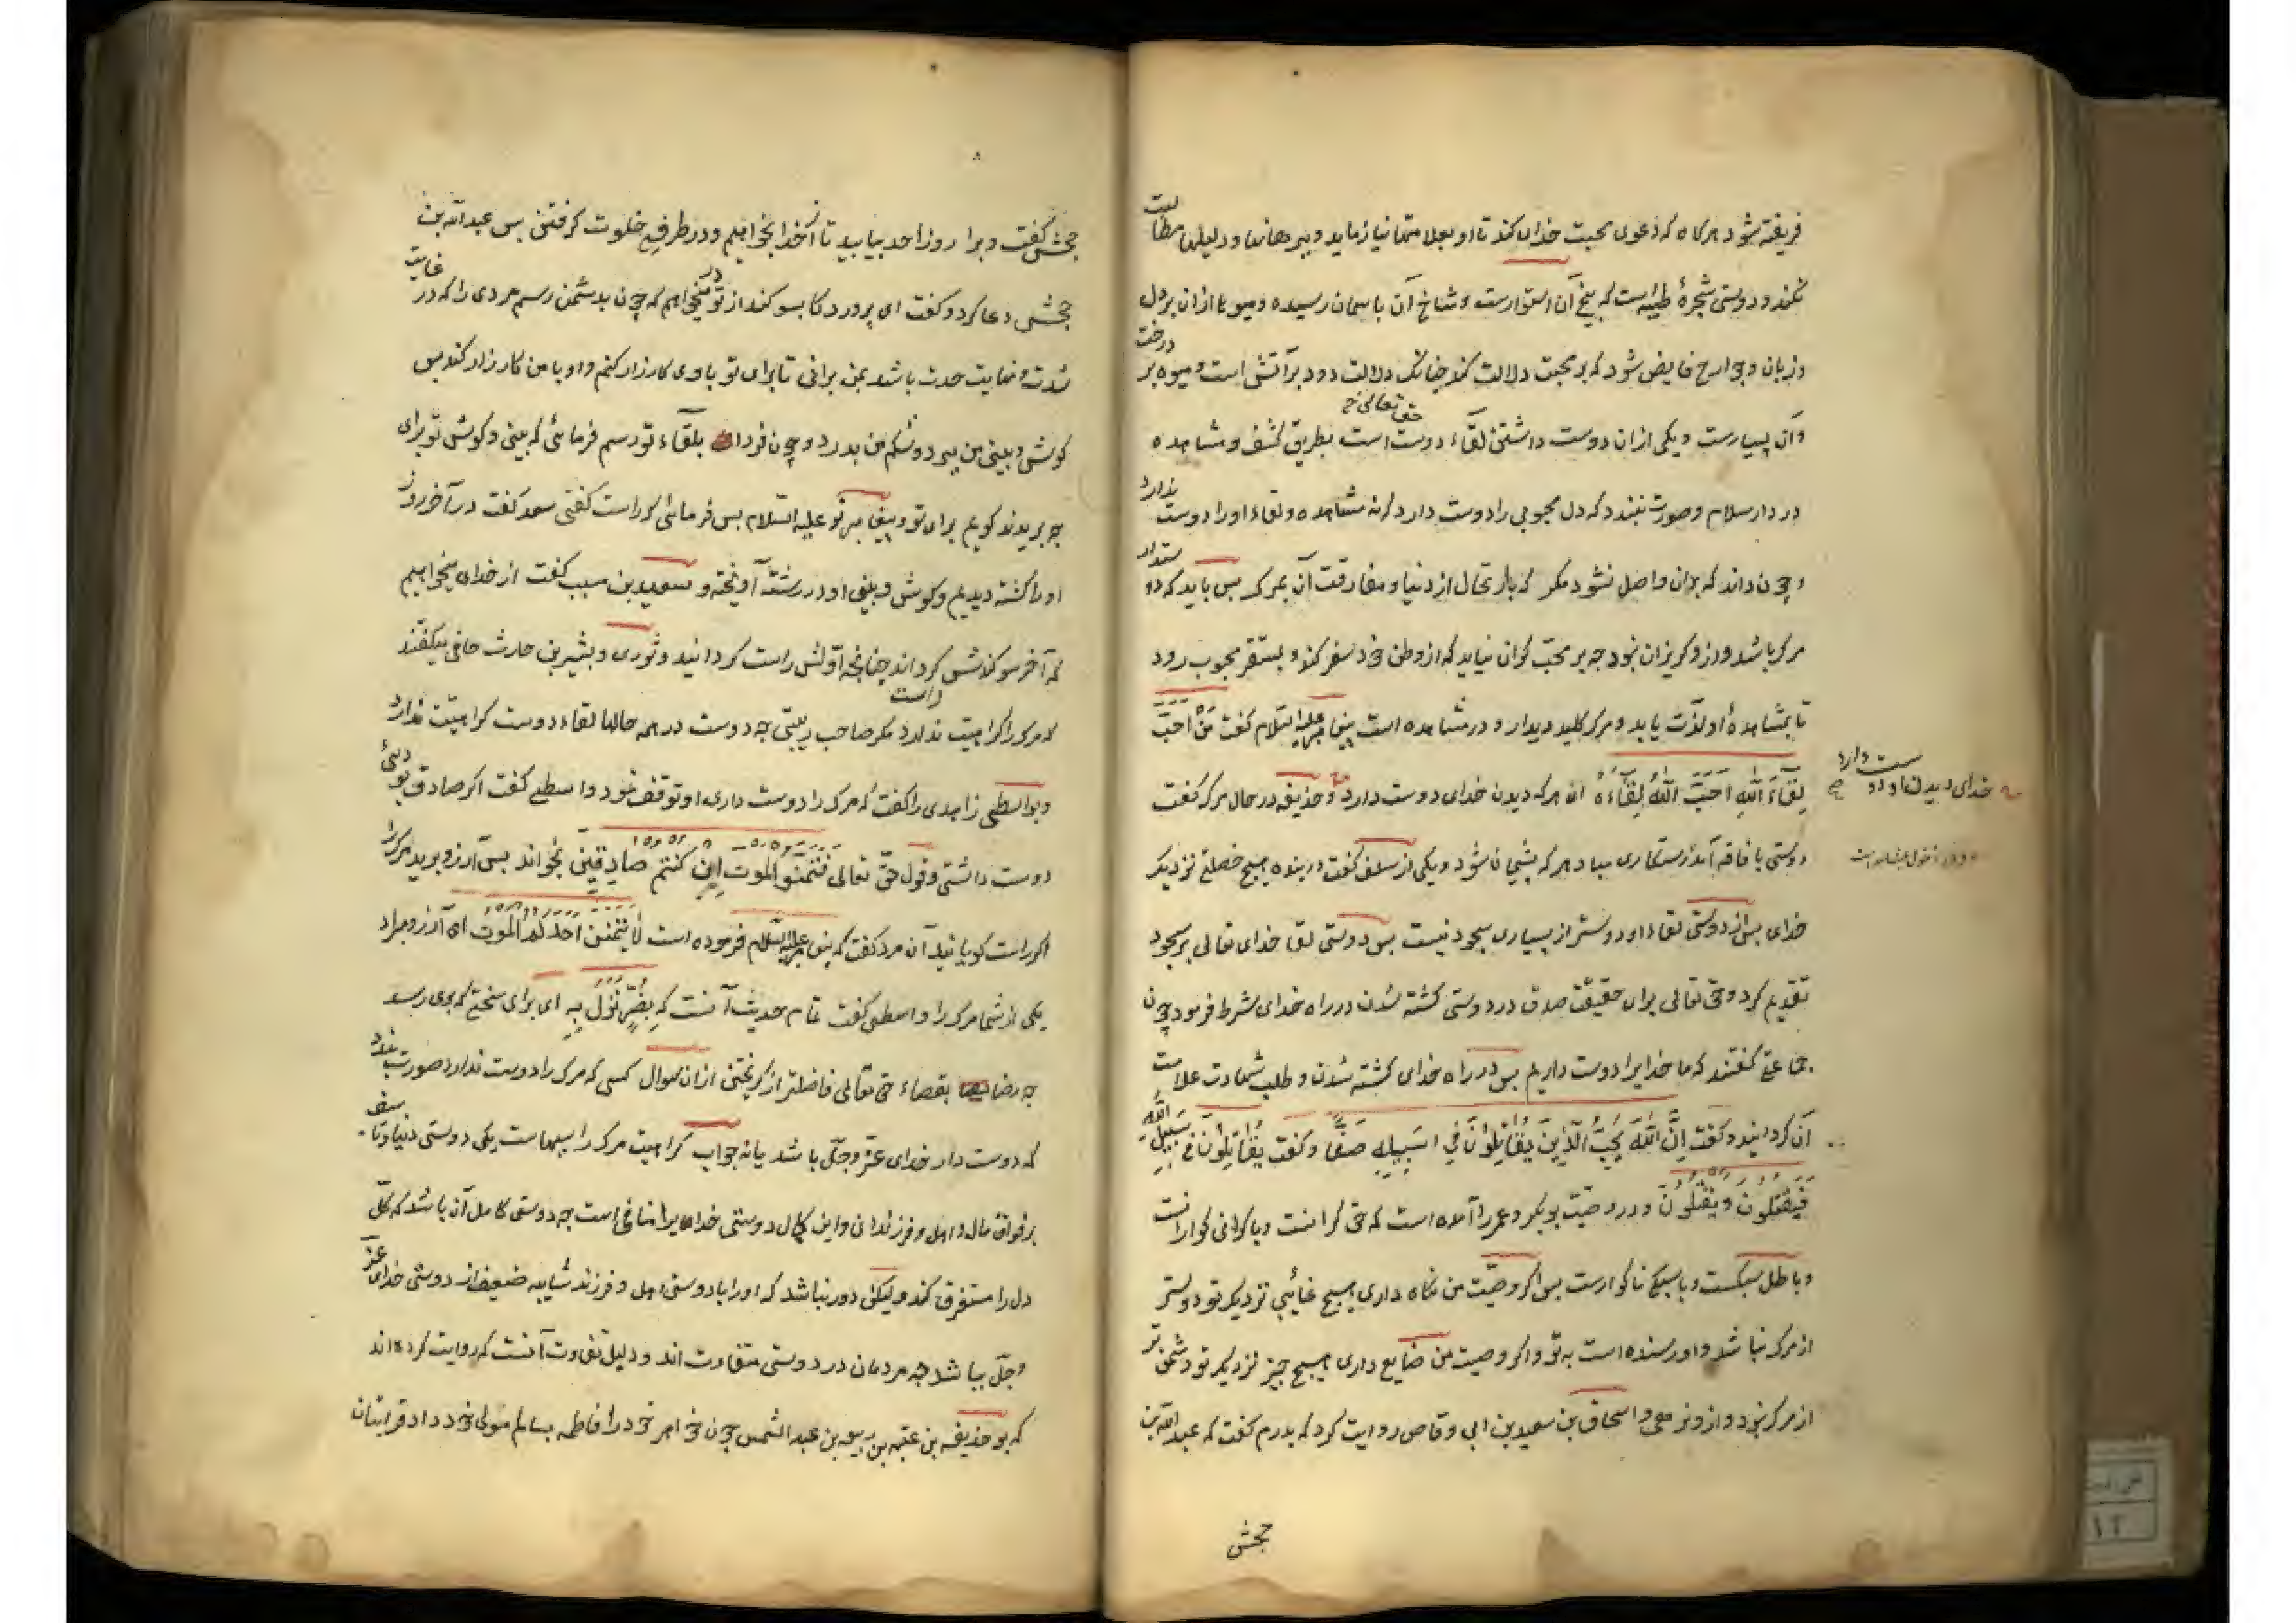 فریفته شود هرگاه که دعوی محبت خدای کند تا او بعلامتها نیازماید و ببرهانها و دلیلها مطالبت
نکند و دوستی شجرهٔ طیبه است که بیخ آن استوارست و شاخ آن بآسمان رسیده و میوها از ان بر دل
و زبان و جوارح فایض شود که بر محبت دلالت کند چنانک دلالت دود بر آتش است و میوه بر درخت
و آن بسیارست و یکی از ان دوست داشتن لقاء دوست است حق تعالی بطریق کشف و مشاهده
در دار سلام و صورت نبندد که دل محبوبی را دوست دارد که نه مشاهده و لقاء او را دوست ندارد
و چون داند که بدان واصل نشود مگر که بارتحال از دنیا و مفارقت آن بمرک بس باید که دوستدار
مرک باشد و از و کریزان نبود چه بر محب کران نیاید که از وطن خود سفر کند و بمستقر محبوب رود
تا بمشاهدهٔ او لذت یابد و مرک کلید دیدار و در مشاهده است پیغامبر علیه السلام کفت مَنْ اَحَبَّ
لِقَاءَ اللهِ اَحَبَّ اللهُ لِقَاءَهُ ای هر که دیدن خدای دوست دارد و حذیفه در حال مرک کفت
خدای دیدن او دوست دارد
دوستی با فاقه آمد رستکاری مباد هر که پشیمان شود و یکی از سلف کفت در بنده هیچ خصلتی نزدیک
خدای بس از دوستی لقاء او دوستر از بسیاری سجود نیست بس دوستی لقا خدای تعالی بر سجود
تقدیم کرد و حق تعالی برای حقیقت صدق در دوستی کشته شدن در راه خدای شرط فرمود چون
جماعتی کفتند که ما خدایرا دوست داریم بس در راه خدای کشته شدن و طلب شهادت علامت
آن کردانید و کفت اِنَّ اللهَ یُحِبُّ الَّذِینَ یُقَاتِلُونَ فِی سَبِیلِهِ صَفًّا و کفت یُقَاتِلُونَ فِی سَبِیلِ اللهِ
فَیَقْتُلُونَ وَیُقْتَلُونَ و در وصیت بوبکر و عمر را آمده است که حق کرانست و با کرانی کوارانست
و باطل سبکست و با سبکی ناکوارست بس اکر وصیت من نکاه داری هیچ غائبی نزدیک تو دوستر
از مرک نباشد و او رسنده است به تو و اکر وصیت من ضایع داری هیچ چیز نزدیک تو دشمن تر
از مرک نبود و از و نرهی و اسحاق بن سعید بن ابی وقاص روایت کرد که بدرم کفت که عبدالله بن
جحش
جحش کفت ویرا روز احد بیایید تا از خدا بخواهیم و در طرفی خلوت کرفتن بس عبدالله بن
جحش دعا کرد و کفت ای پروردکار سوکند از تو در میخواهم که چون بدشمن رسم مردی را که در غایت
شدت و نهایت حدت باشد بمن برانی تا برای تو با وی کارزار کنم و او با من کارزار کند بس
کوش و بینی من ببرد و شکم من بدرد و چون فردا بلقاء تو رسم فرمائی که بینی و کوش تو برای
چه بریدند کویم برای تو و پیغامبر تو علیه السلام بس فرمائی که راست کفتی سعد کفت در آخر روز
او را کشته دیدیم و کوش و بینی او در رشته آویخته و سعید بن مسیب کفت از خدای میخواهیم
که آخر سوکندش کرداند چنانچه اولش راست کردانید و ثوری و بشر بن حارث حافی میکفتند
که مرک را کراهیت ندارد مکر صاحب ریبتی چه دوست در همه حالها لقاء دوست کراهیت ندارد
و بواسطی زاهدی را کفت که مرک را دوست داری او توقف نمود واسطی کفت اکر صادق بودئی
دوست داشتی و قول حق تعالی فَتَمَنَّوُا الْمَوْتَ اِنْ کُنْتُمْ صَادِقِینَ بخواند بس آرزو برید مرک را
اکر راست کویانید آن مرد کفت که پیغامبر علیه السلام فرموده است لَا یَتَمَنَّیَنَّ اَحَدُکُمُ الْمَوْتَ ای آرزو مبراد
یکی از شما مرک را واسطی کفت تمام حدیث آنست که لِضُرٍّ نَزَلَ بِهِ ای برای سختی که بوی رسد
چه رضا بقضاء حق تعالی فاضلتر از کریختن از ان سوال کسی که مرک را دوست ندارد صورت بندد
که دوست دار خدای عز وجل باشد یا نه جواب کراهیت مرک را سببهاست یکی دوستی دنیا و تاسف
بر فراق مال و اهل و فرزندان و این کمال دوستی خدای را منافی است چه دوستی کامل آن باشد که کل
دل را مستغرق کند و لیکن دور نباشد که او را با دوستی اهل و فرزند شایبه ضعیف از دوستی خدای عز
و جل بباشد چه مردمان در دوستی متفاوت اند و دلیل تفاوت آنست که روایت کرده اند
که بوحذیفه بن عتبه بن ربیعه بن عبد الشمس چون خواهر خود را فاطمه بسالم مولی خود داد قرایشان